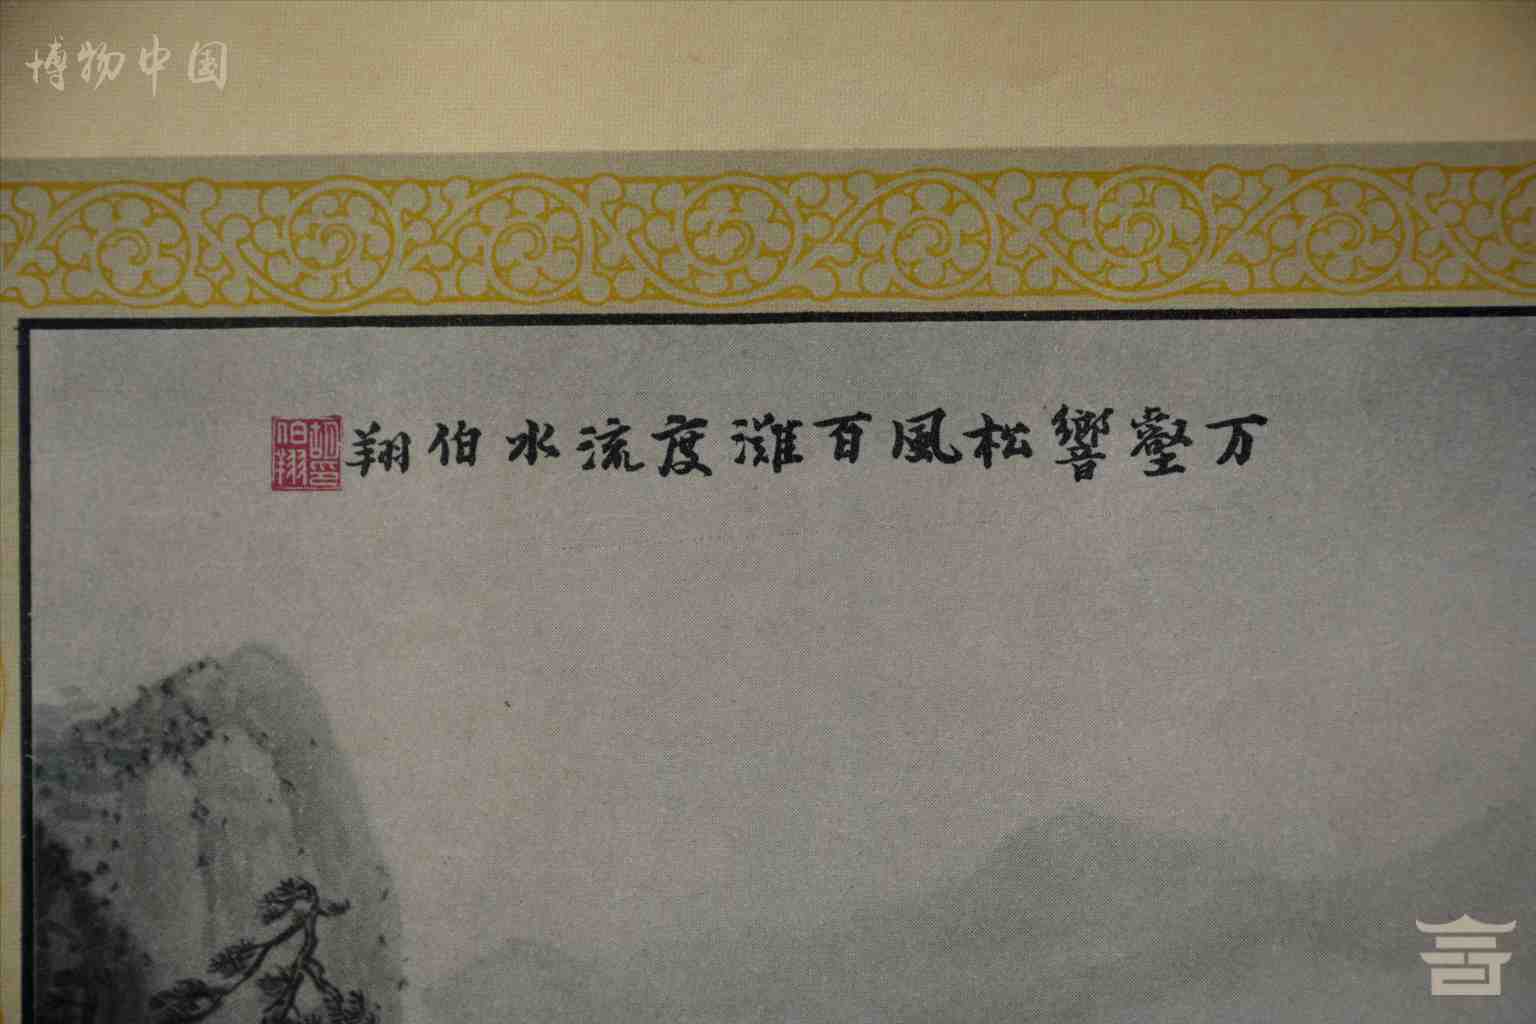 博物中国
万壑響松風百灘度流水伯翔
胡印伯翔